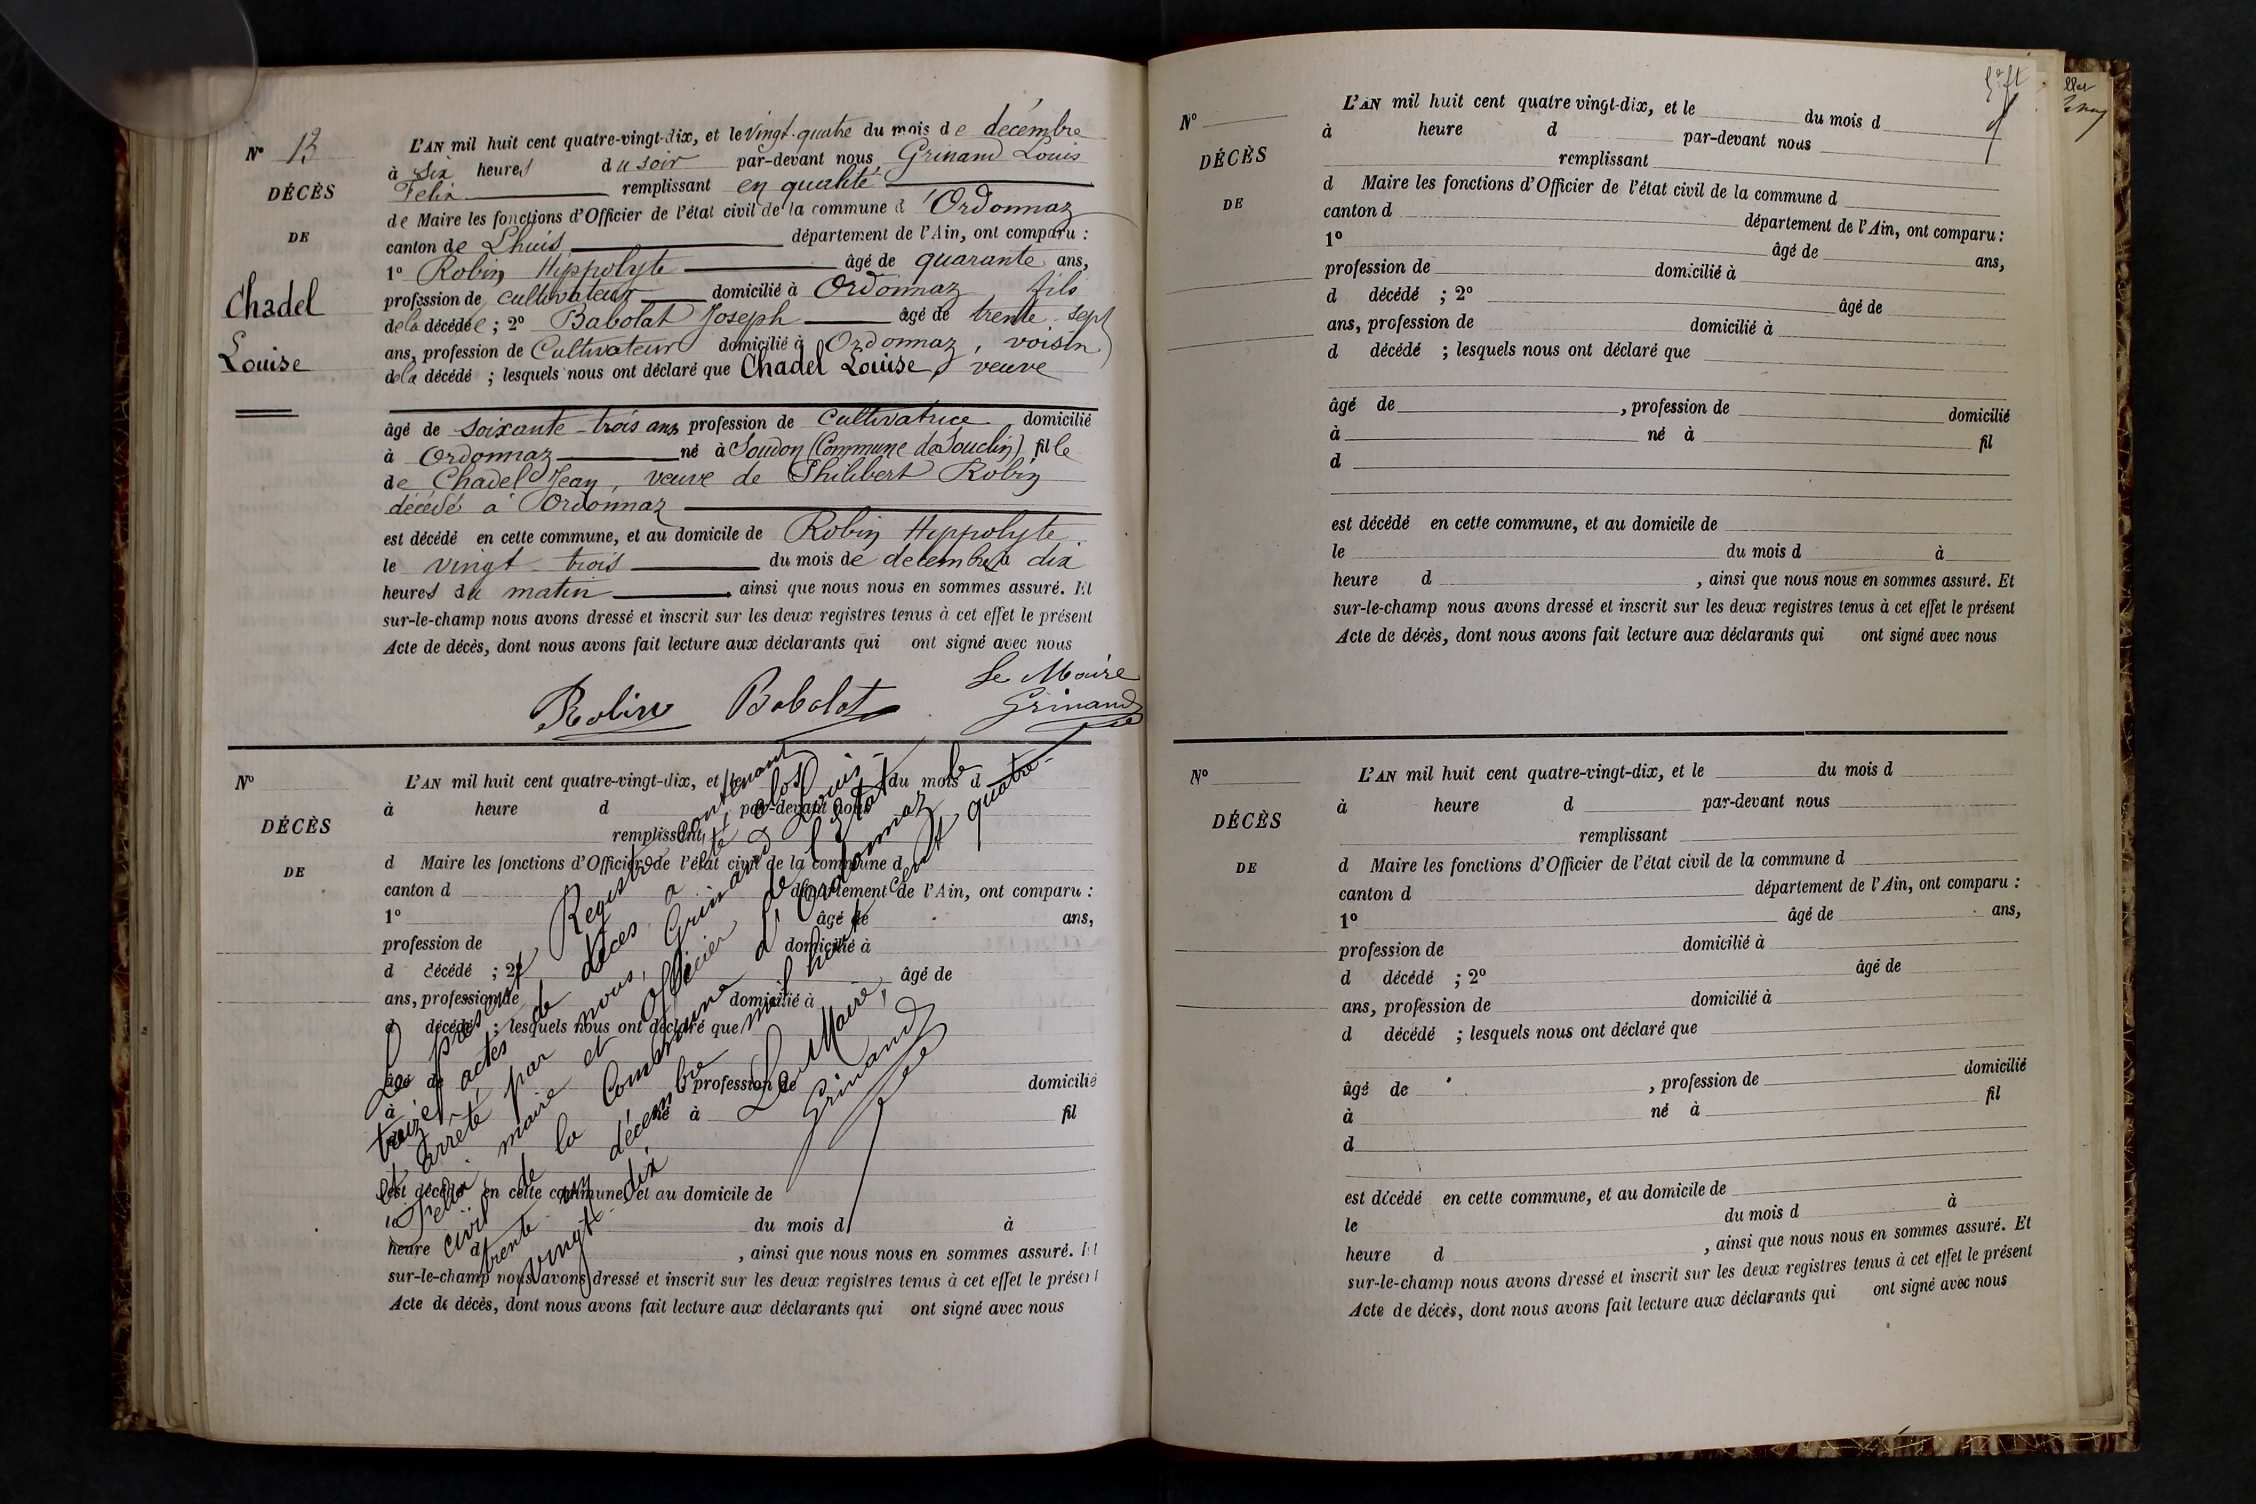 N° 13
DÉCÈS
DE
Chadel
Louise
L'AN mil huit cent quatre-vingt-dix, et le Vingt-quatre du mois de décembre
à Six heures du soir par-devant nous Grinand Louis
Felix remplissant en qualité
de Maire les fonctions d'Officier de l'état civil de la commune d'Ordonnaz
canton de Lhuis département de l'Ain, ont comparu :
1° Robin Hippolyte âgé de quarante ans,
profession de cultivateur domicilié à Ordonnaz fils
de la décédée ; 2° Babolat Joseph âgé de trente-sept
ans, profession de Cultivateur domicilié à Ordonnaz, voisin
de la décédé ; lesquels nous ont déclaré que Chadel Louise, veuve
âgé de soixante-trois ans profession de Cultivatrice domicilié
à Ordonnaz né à Soudon (Commune de Souclin) fille
de Chadel Jean, veuve de Philibert Robin
décédé à Ordonnaz
est décédé en cette commune, et au domicile de Robin Hippolyte
le vingt-trois du mois de décembre à dix
heures du matin, ainsi que nous nous en sommes assuré. Et
sur-le-champ nous avons dressé et inscrit sur les deux registres tenus à cet effet le présent
Acte de décès, dont nous avons fait lecture aux déclarants qui ont signé avec nous
Robin Babolat Le Maire
Grinand
N°
DÉCÈS
DE
L'AN mil huit cent quatre-vingt-dix, et le du mois d
à heure d par-devant nous
remplissant
d Maire les fonctions d'Officier de l'état civil de la commune d
canton d département de l'Ain, ont comparu :
1° âgé de ans,
profession de domicilié à
d décédé ; 2° âgé de
ans, profession de domicilié à
d décédé ; lesquels nous ont déclaré que
âgé de profession de domicilié
à né à fil
est décédé en cette commune, et au domicile de
le du mois d à
heure d , ainsi que nous nous en sommes assuré. Et
sur-le-champ nous avons dressé et inscrit sur les deux registres tenus à cet effet le présent
Acte de décès, dont nous avons fait lecture aux déclarants qui ont signé avec nous
Le présent Registre contenant
treize actes de décès a été clos
et arrêté par nous, Grinand Louis-
Felix maire et Officier de l'état
civil de la Commune d'Ordonnaz le
trente un décembre mil huit cent quatre-
vingt-dix
Le Maire,
Grinand
N°
DÉCÈS
DE
L'AN mil huit cent quatre vingt-dix, et le du mois d
à heure d par-devant nous
remplissant
d Maire les fonctions d'Officier de l'état civil de la commune d
canton d département de l'Ain, ont comparu :
1° âgé de ans,
profession de domicilié à
d décédé ; 2° âgé de
ans, profession de domicilié à
d décédé ; lesquels nous ont déclaré que
âgé de , profession de domicilié
à né à fil
d
est décédé en cette commune, et au domicile de
le du mois d à
heure d , ainsi que nous nous en sommes assuré. Et
sur-le-champ nous avons dressé et inscrit sur les deux registres tenus à cet effet le présent
Acte de décès, dont nous avons fait lecture aux déclarants qui ont signé avec nous
N°
DÉCÈS
DE
L'AN mil huit cent quatre-vingt-dix, et le du mois d
à heure d par-devant nous
remplissant
d Maire les fonctions d'Officier de l'état civil de la commune d
canton d département de l'Ain, ont comparu :
1° âgé de ans,
profession de domicilié à
d décédé ; 2° âgé de
ans, profession de domicilié à
d décédé ; lesquels nous ont déclaré que
âgé de , profession de domicilié
à né à fil
d
est décédé en cette commune, et au domicile de
le du mois d à
heure d , ainsi que nous nous en sommes assuré. Et
sur-le-champ nous avons dressé et inscrit sur les deux registres tenus à cet effet le présent
Acte de décès, dont nous avons fait lecture aux déclarants qui ont signé avec nous